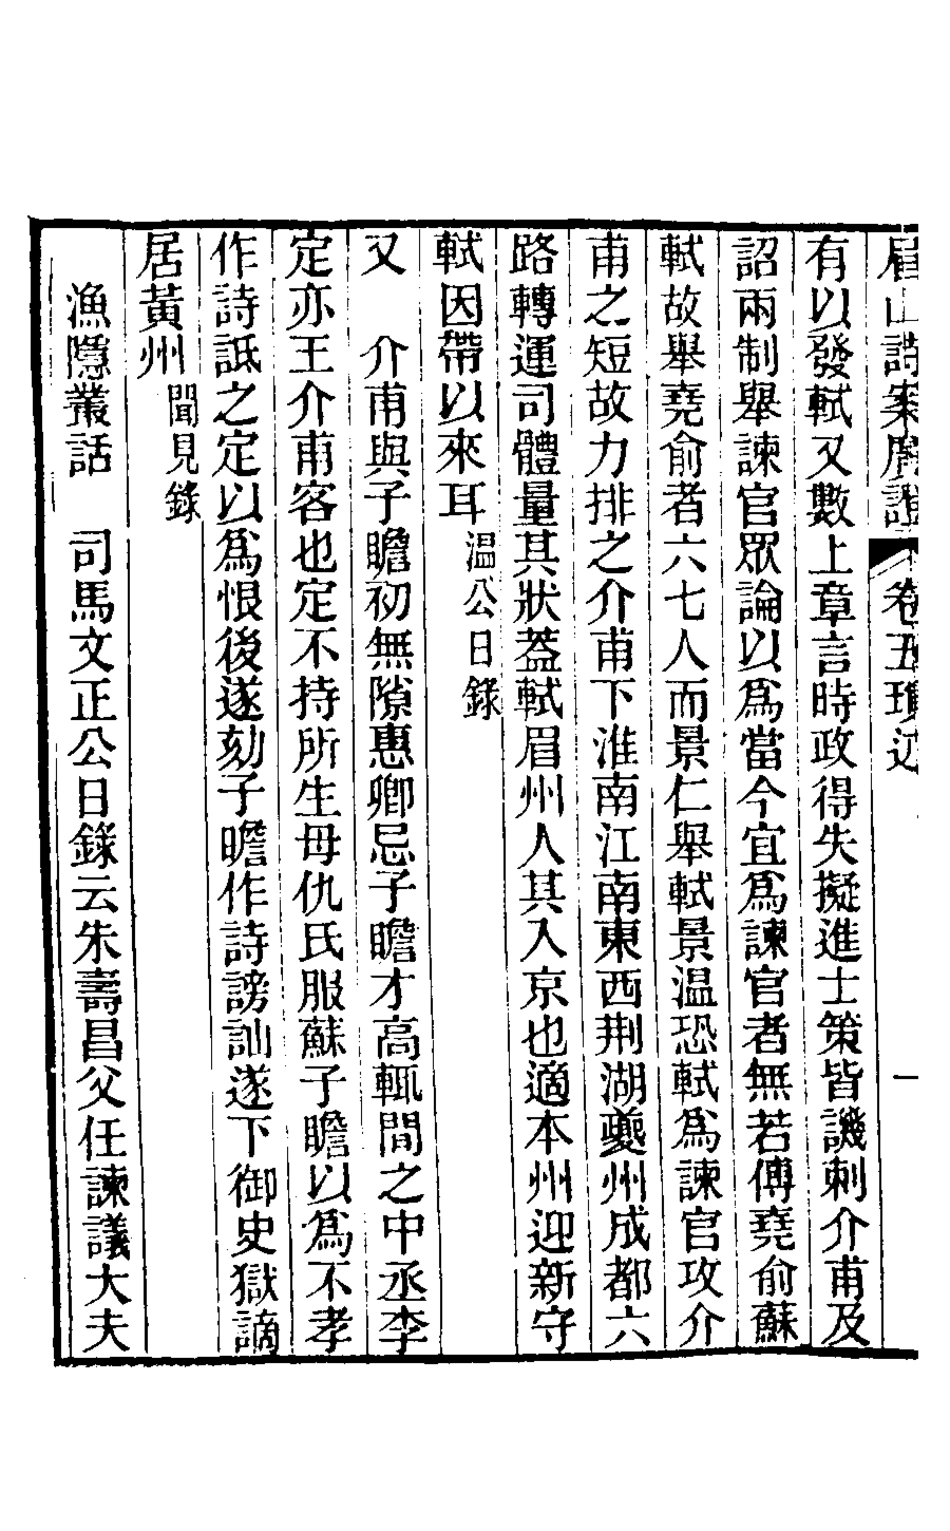 眉山詩案廣證 卷五 瑣述 一
有以發軾又數上章言時政得失擬進士策皆譏刺介甫及
詔兩制舉諫官眾論以為當今宜為諫官者無若傅堯俞蘇
軾故舉堯俞者六七人而景仁舉軾景温恐軾為諫官攻介
甫之短故力排之介甫下淮南江南東西荆湖夔州成都六
路轉運司體量其狀葢軾眉州人其入京也適本州迎新守
軾因帶以來耳温公日錄
又 介甫與子瞻初無隙惠卿忌子瞻才高輒間之中丞李
定亦王介甫客也定不持所生母仇氏服蘇子瞻以為不孝
作詩詆之定以為恨後遂劾子瞻作詩謗訕遂下御史獄謫
居黃州聞見錄
漁隱叢話 司馬文正公日錄云朱壽昌父任諫議大夫